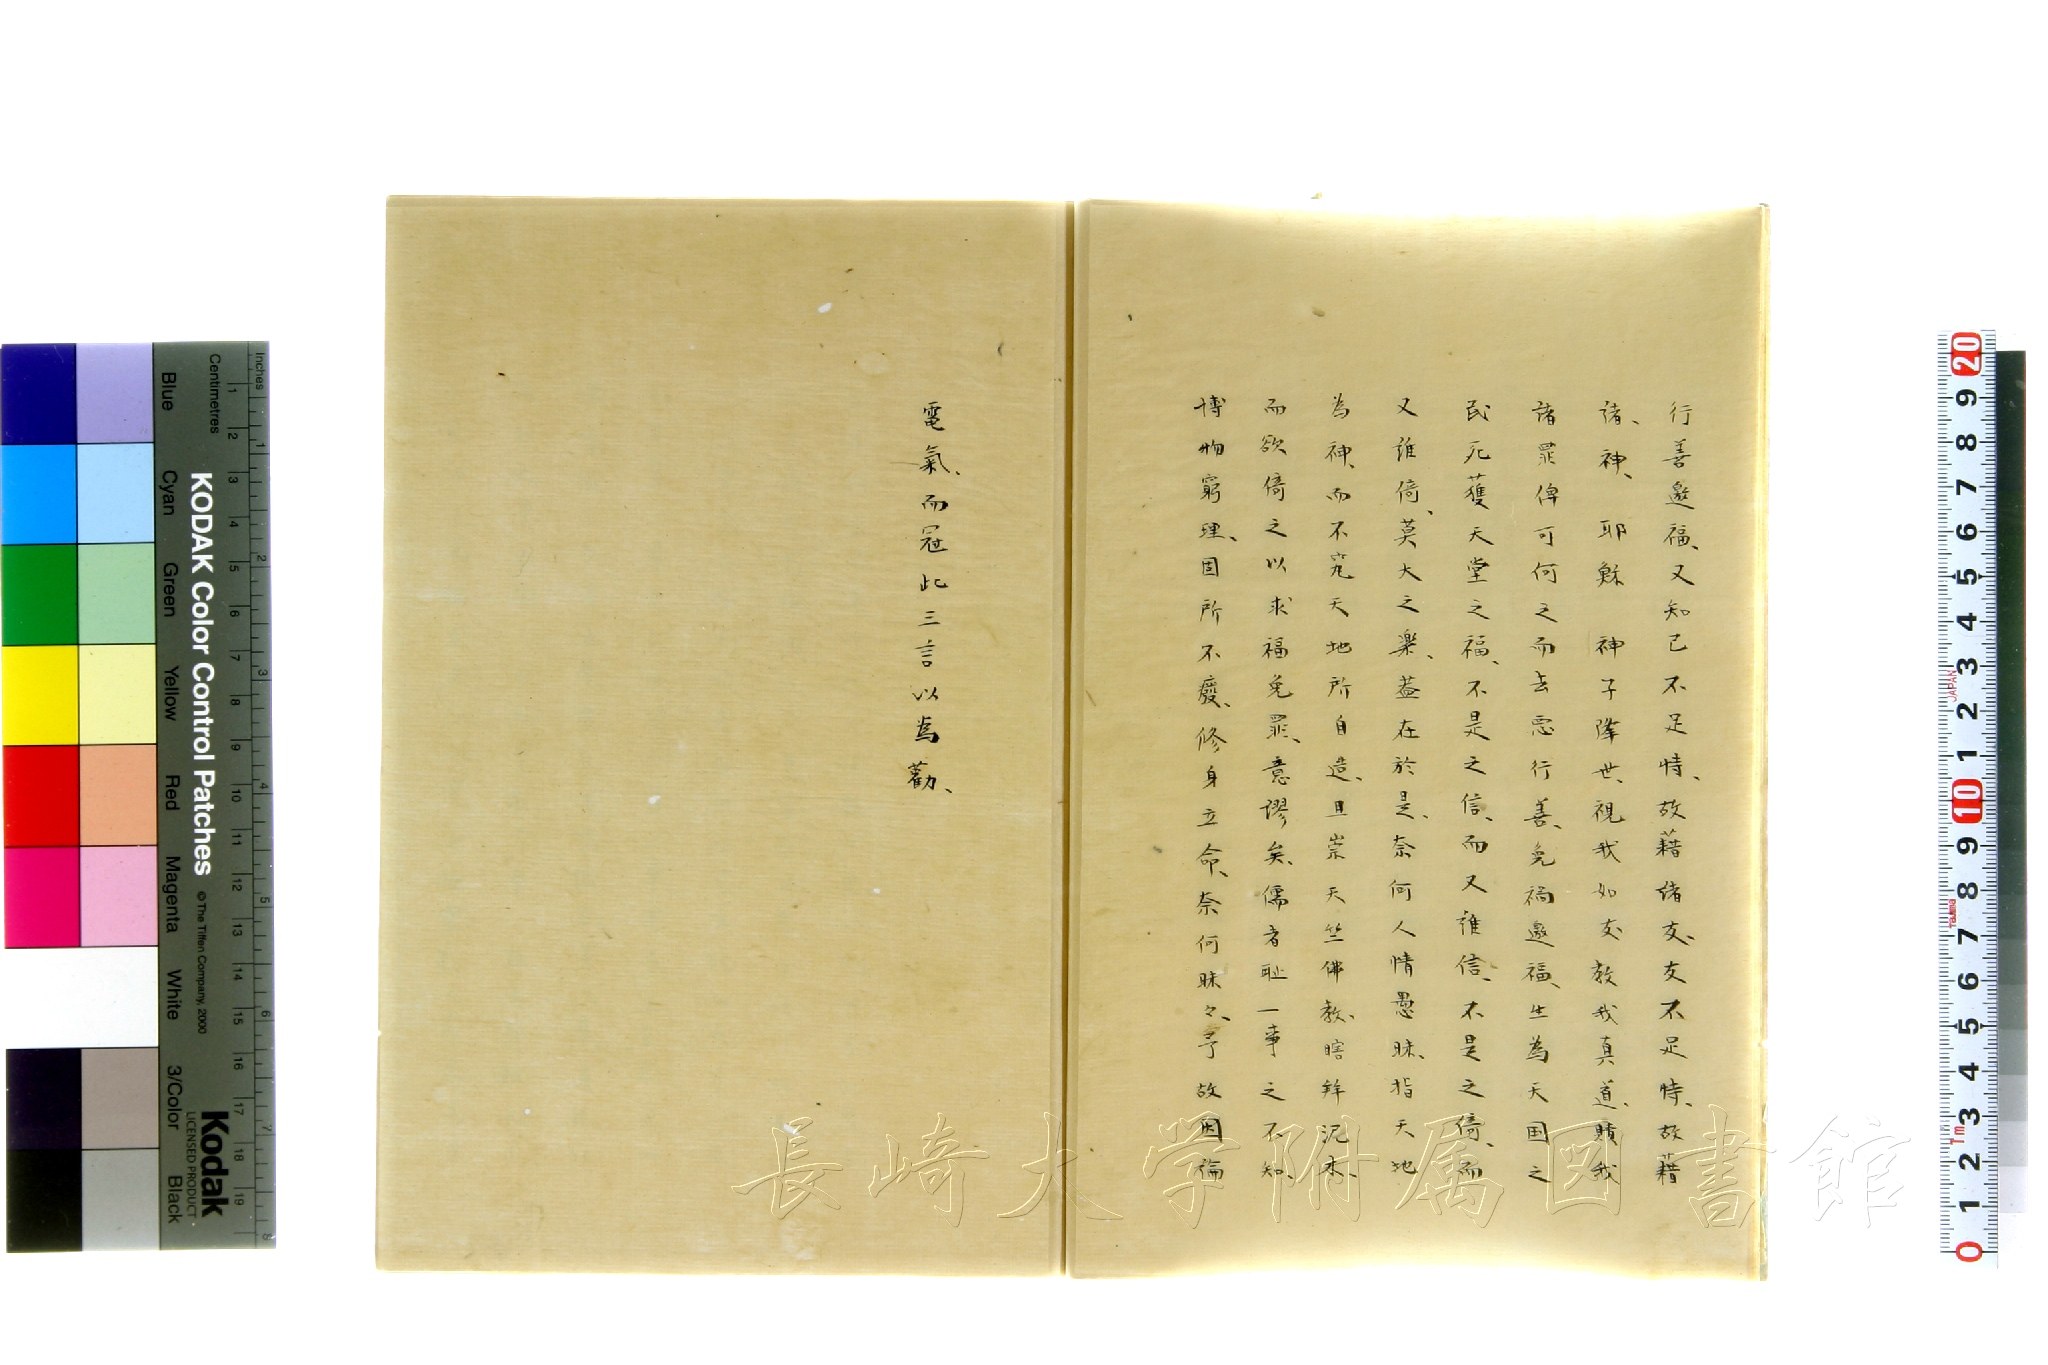 行善邀福、又知己不足恃、故藉諸友、友不足恃、故藉
諸、神、耶穌 神子降世、視我如友、教我真道、贖我
諸罪俾可何之而去悪行善、免禍邀福、生為天国之
民死獲天堂之福、不是之信、而又誰信、不是之倚、而
又誰倚、莫大之楽、蓋在於是、奈何人情愚昧、指天地
為神、而不究天地所自造、且崇天竺佛教、瞎拜泥木、
而欲倚之以求福免罪、意謬矣、儒者恥一事之不知、
博物窮理、固所不廢、修身立命、奈何昧々、予故因論
電氣、而冠此三言以為勸、
長崎大学附属図書館
KODAK Color Control Patches
© The Tiffen Company, 2000
Kodak
LICENSED PRODUCT
Inches
Centimetres
Blue
Cyan
Green
Yellow
Red
Magenta
White
3/Color
Black
1 2 3 4 5 6 7 8 9 10 11 12 13 14 15 16 17 18 19
1 2 3 4 5 6 7 8
20 9 8 7 6 5 4 3 2 1 10 9 8 7 6 5 4 3 2 1 0
JAPAN